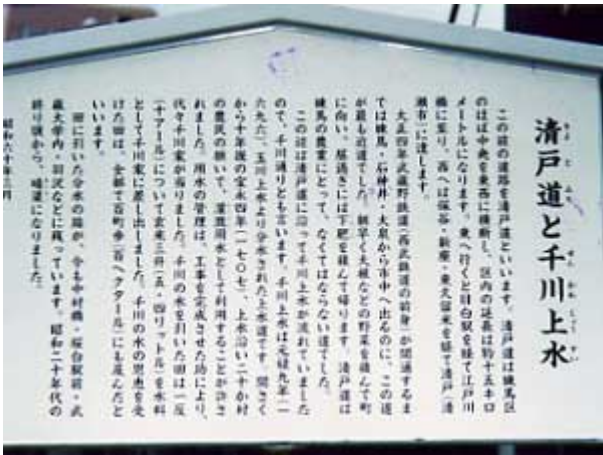 清戸道と千川上水
きよとみち せんかわじょうすい
この前の道路を清戸道といいます。清戸道は練馬区
のほぼ中央を東西に横断し、区内の延長は約十五キロ
メートルになります。東へ行くと目白駅を経て江戸川
橋に至り、西へは保谷・新座・東久留米を経て清戸(清
瀬市)に達します。
大正四年武蔵野鉄道(西武鉄道の前身)が開通するま
では練馬・石神井・大泉から市中へ出るのに、この道
が最も近道でした。朝早く大根などの野菜を積んで町
に向い、昼過ぎには下肥を積んで帰ります。清戸道は
練馬の農業にとって、なくてはならない道でした。
この辺は清戸道に沿って千川上水が流れていました
ので、千川通りとも言います。千川上水は元禄九年(一
六九六)、玉川上水より分水された上水道です。開さく
から十年後の宝永四年(一七〇七)、上水沿い二十か村
の農民の願いで、灌漑用水として利用することが許さ
れました。用水の管理は、工事を完成させた功により、
代々千川家が当りました。千川の水を引いた田は一反
(十アール)について玄米三升(五・四リットル)を水料
として千川家に差し出しました。千川の水の恩恵を受
けた田は、全部で百町歩(百ヘクタール)にも及んだと
いいます。
田に引いた分水の跡が、今も中村橋・桜台駅前・武
蔵大学内・羽沢などに残っています。昭和二十年代の
終り頃から、暗渠になりました。
昭和六十年三月